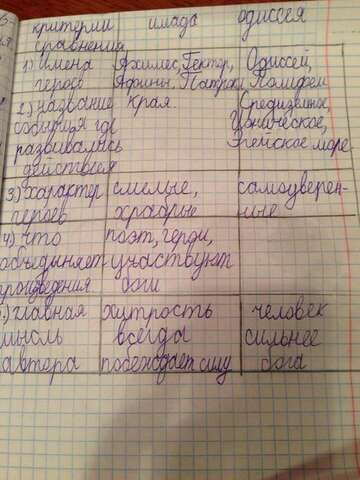 критерии илиада одиссея
сравнения
1) имена Ахиллес, Гектор, Одиссей,
героев Афины, Патрокл Полифем
2) название края. Средиземное,
события где Ионическое,
развивались Эгейское море
действия
3) характер смелые, самоуверен-
героев храбрые ные
4) что поэт, герои,
объединяет участвуют
произведения боги
.) главная хитрость человек
мысль всегда сильнее
автора побеждает силу бога